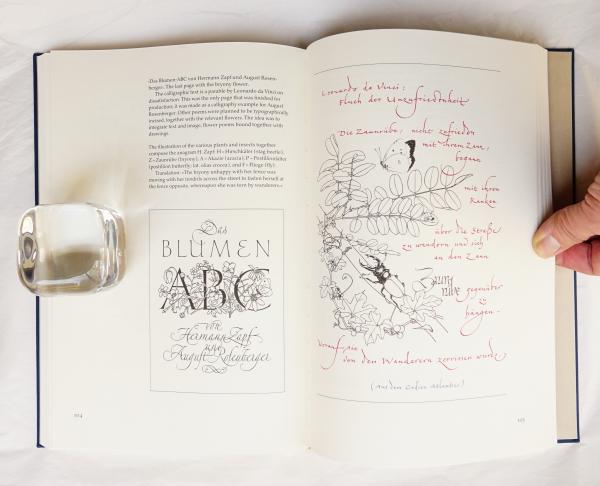 ›Das Blumen-ABC‹ von Hermann Zapf und August Rosen-
berger‹. The last page with the bryony flower.
The calligraphic text is a parable by Leonardo da Vinci on
dissatisfaction. This was the only page that was finished for
production; it was made as a calligraphy example for August
Rosenberger. Other poems were planned to be typographically
revised, together with the relevant flowers. The idea was to
integrate text and image, flower poems bound together with
drawings.
The illustration of the various plants and insects together
compose the anagram H. Zapf: H = Hirschkäfer (stag beetle),
Z = Zaunrübe (bryony), A = Akazie (acacia), P = Postillonfalter
(postilion butterfly, lat. colias crocea), and F = Fliege (fly).
Translation: »The bryony unhappy with her fence was
moving with her tendrils across the street to fasten herself at
the fence opposite, whereupon she was torn by wanderers.«
Das
BLUMEN
ABC
von
Hermann Zapf
und
August Rosenberger
104
Leonardo da Vinci:
Fluch der Unzufriedenheit
Die Zaunrübe, nicht zufrieden
mit ihrem Zaun,
begann
mit ihren
Ranken
über die Straße
zu wandern und sich
an den Zaun
Zaun
rübe
gegenüber
zu
hängen.
Worauf sie
von den Wanderern zerrissen wurde.
(Aus dem Codex Atlanticus)
105